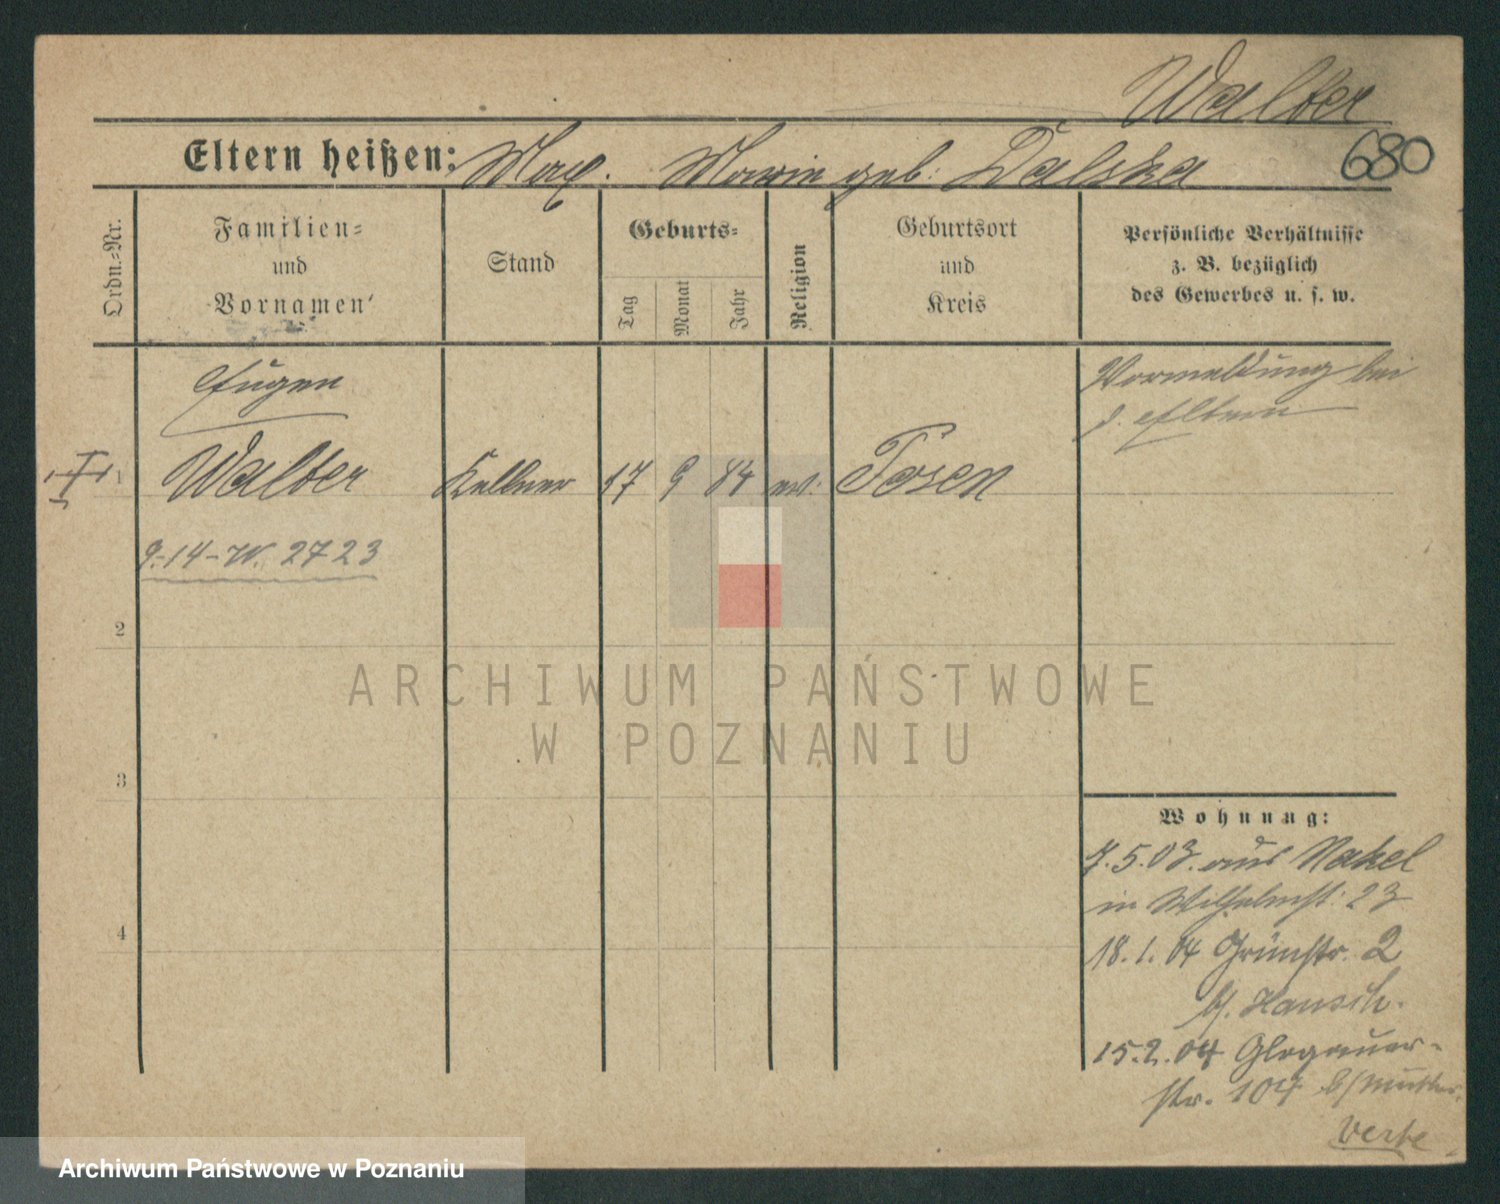 Walter
680
Eltern heißen: Max. Marie geb: Dalska
Ordn.-Nr.
Familien-
und
Vornamen
Stand
Geburts-
Tag
Monat
Jahr
Religion
Geburtsort
und
Kreis
Persönliche Verhältnisse
z. B. bezüglich
des Gewerbes u. s. w.
Eugen
Vormeldung bei
d. Eltern
1 Walter Kellner 17 9 84 ev: Posen
9.-14-W. 2723
2
3
4
ARCHIWUM PAŃSTWOWE
W POZNANIU
Wohnung:
7.5.03. aus Nakel
in Wilhelmst: 23
18.1.04 Grünstr. 2
b/. Hansch.
15.2.04 Glogauer-
str. 104 b/Mutter.
Archiwum Państwowe w Poznaniu